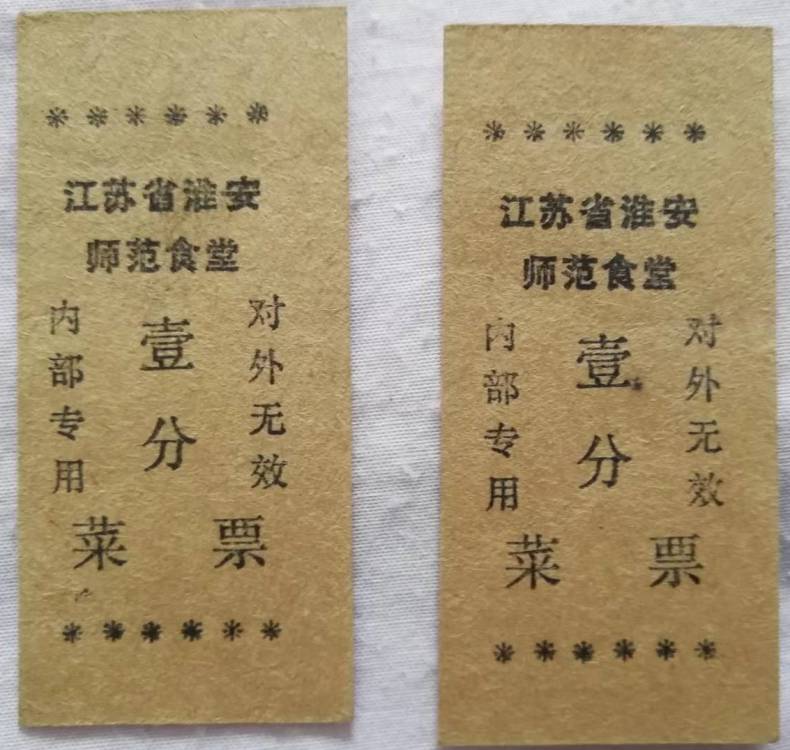 ******
江苏省淮安
师范食堂
内部专用
壹分
对外无效
菜票
******
******
江苏省淮安
师范食堂
内部专用
壹分
对外无效
菜票
******